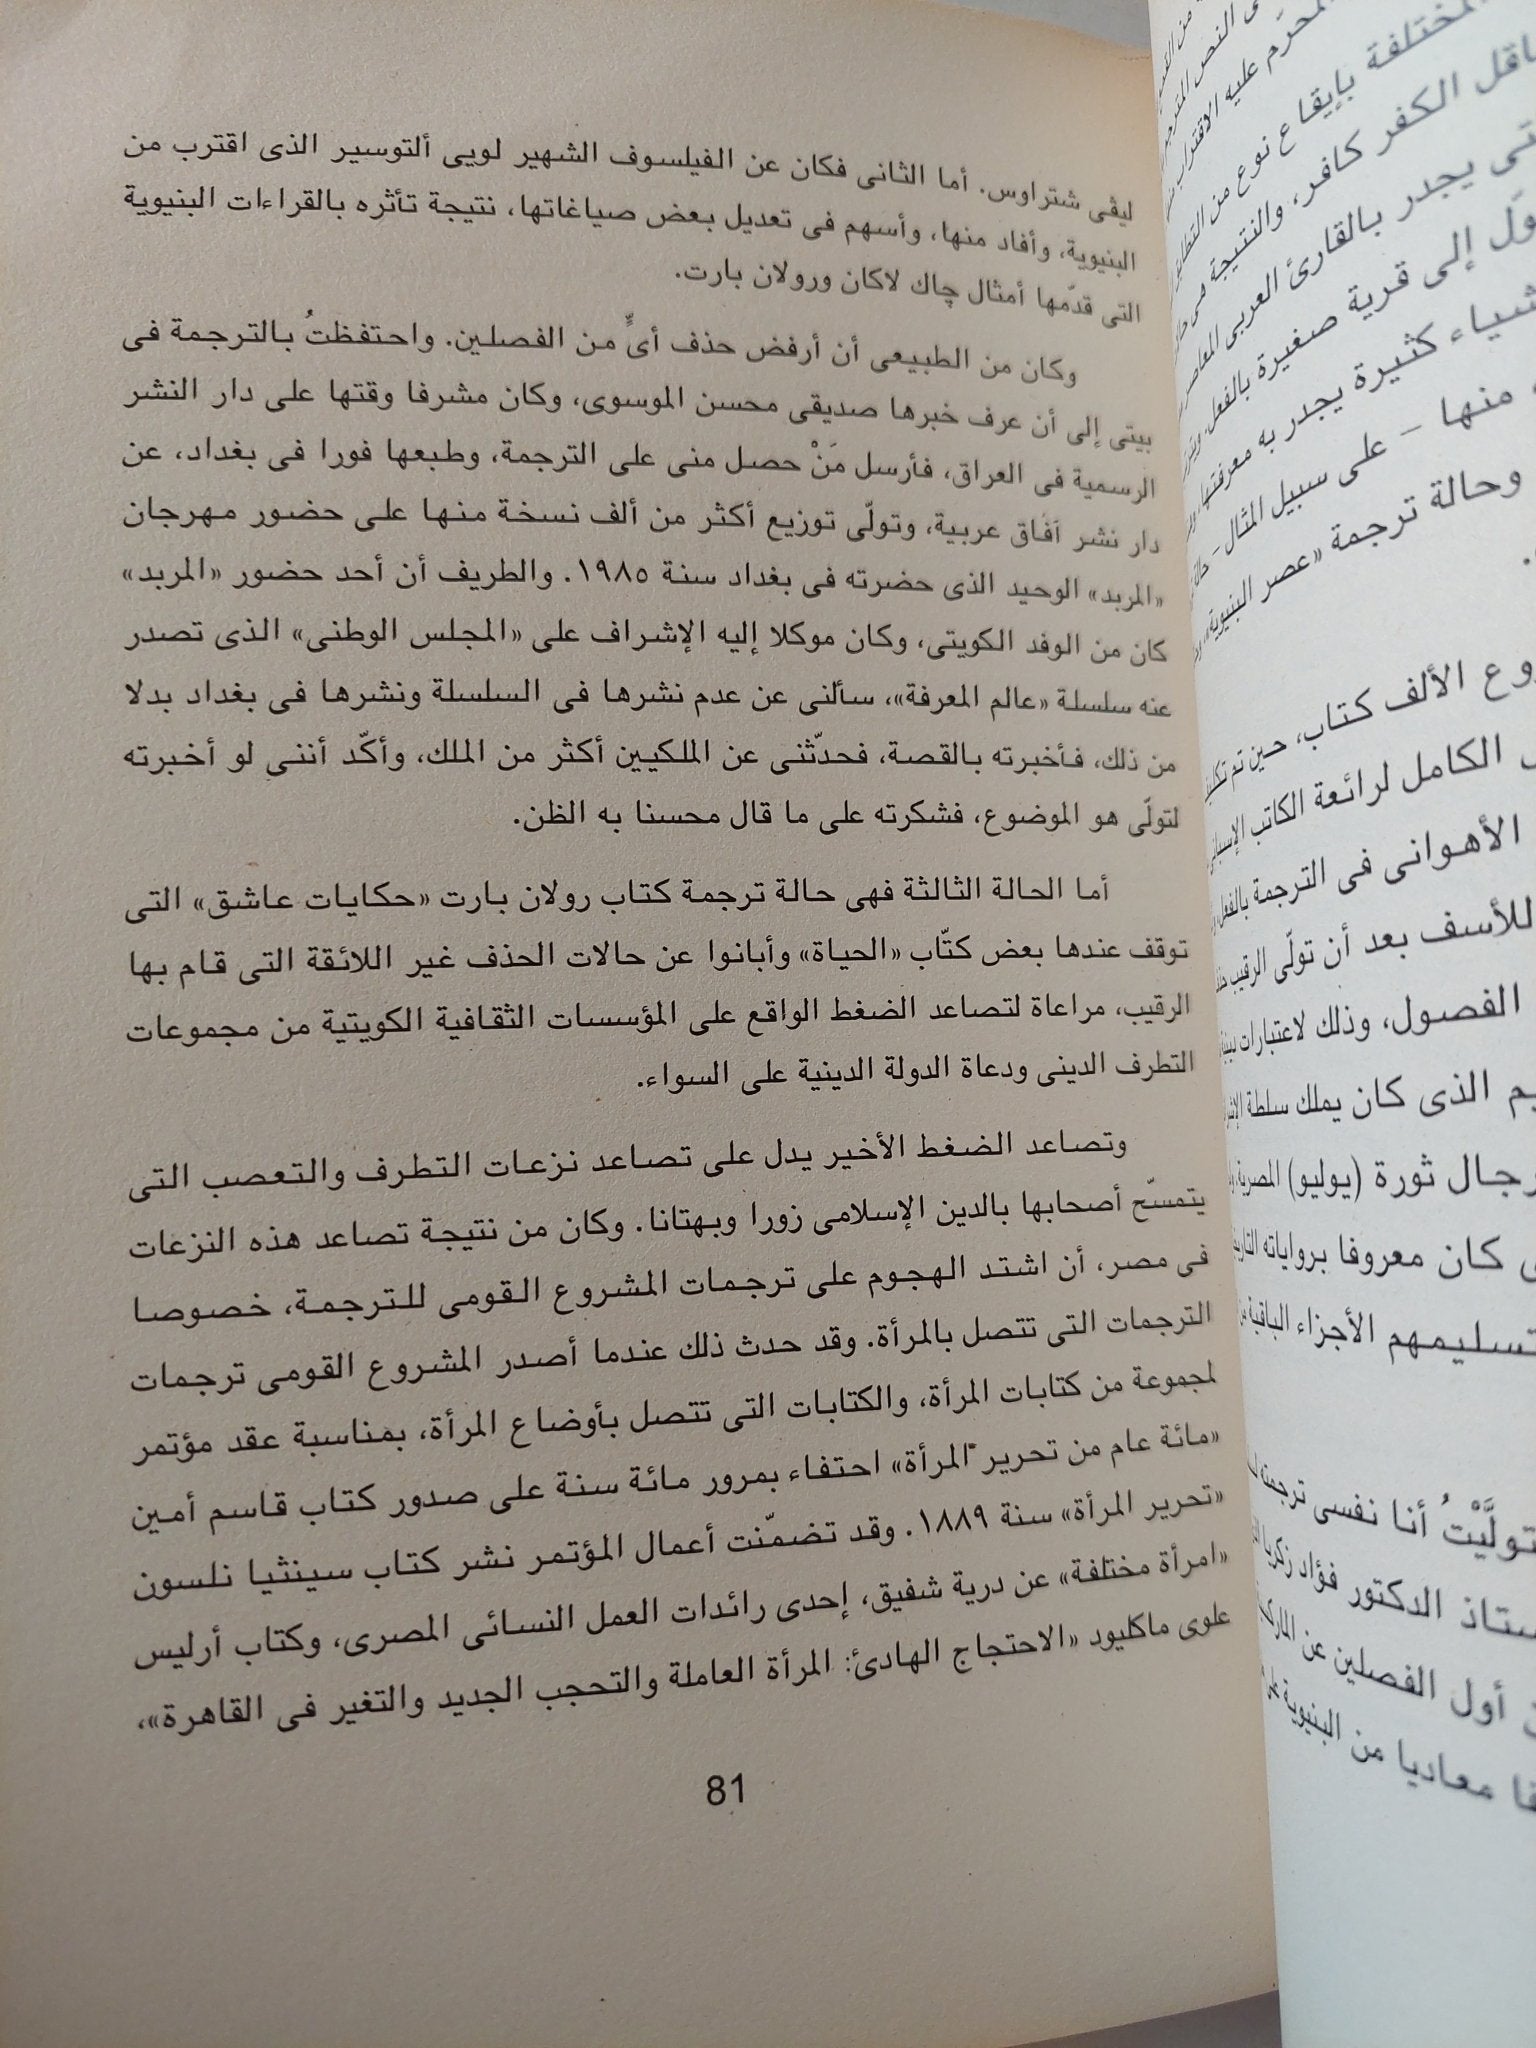 ليڤى شتراوس. أما الثانى فكان عن الفيلسوف الشهير لويى ألتوسير الذى اقترب من
البنيوية، وأفاد منها، وأسهم فى تعديل بعض صياغاتها، نتيجة تأثره بالقراءات البنيوية
التى قدّمها أمثال چاك لاكان ورولان بارت.
وكان من الطبيعى أن أرفض حذف أىٍّ من الفصلين. واحتفظتُ بالترجمة فى
بيتى إلى أن عرف خبرها صديقى محسن الموسوى، وكان مشرفا وقتها على دار النشر
الرسمية فى العراق، فأرسل مَنْ حصل منى على الترجمة، وطبعها فورا فى بغداد، عن
دار نشر آفاق عربية، وتولّى توزيع أكثر من ألف نسخة منها على حضور مهرجان
«المربد» الوحيد الذى حضرته فى بغداد سنة ١٩٨٥. والطريف أن أحد حضور «المربد»
كان من الوفد الكويتى، وكان موكلا إليه الإشراف على «المجلس الوطنى» الذى تصدر
عنه سلسلة «عالم المعرفة»، سألنى عن عدم نشرها فى السلسلة ونشرها فى بغداد بدلا
من ذلك، فأخبرته بالقصة، فحدّثنى عن الملكيين أكثر من الملك، وأكّد أننى لو أخبرته
لتولّى هو الموضوع، فشكرته على ما قال محسنا به الظن.
أما الحالة الثالثة فهى حالة ترجمة كتاب رولان بارت «حكايات عاشق» التى
توقف عندها بعض كتّاب «الحياة» وأبانوا عن حالات الحذف غير اللائقة التى قام بها
الرقيب، مراعاة لتصاعد الضغط الواقع على المؤسسات الثقافية الكويتية من مجموعات
التطرف الدينى ودعاة الدولة الدينية على السواء.
وتصاعد الضغط الأخير يدل على تصاعد نزعات التطرف والتعصب التى
يتمسّح أصحابها بالدين الإسلامى زورا وبهتانا. وكان من نتيجة تصاعد هذه النزعات
فى مصر، أن اشتد الهجوم على ترجمات المشروع القومى للترجمة، خصوصا
الترجمات التى تتصل بالمرأة. وقد حدث ذلك عندما أصدر المشروع القومى ترجمات
لمجموعة من كتابات المرأة، والكتابات التى تتصل بأوضاع المرأة، بمناسبة عقد مؤتمر
«مائة عام من تحرير المرأة» احتفاء بمرور مائة سنة على صدور كتاب قاسم أمين
«تحرير المرأة» سنة ١٨٨٩. وقد تضمّنت أعمال المؤتمر نشر كتاب سينثيا نلسون
«امرأة مختلفة» عن درية شفيق، إحدى رائدات العمل النسائى المصرى، وكتاب أرليس
علوى ماكليود «الاحتجاج الهادئ: المرأة العاملة والتحجب الجديد والتغير فى القاهرة»،
81
المحرّم عليه
المختلفة بإيقاع نوع من
ناقل الكفر كافر، والنتيجة هى
يجدر بالقارئ العربى المعاصر
إلى قرية صغيرة بالفعل،
كثيرة يجدر به معرفتها،
منها – على سبيل المثال –
وحالة ترجمة «عصر البنيوية»
الألف كتاب، حين تم
الكامل لرائعة الكاتب الإسبانى
الأهوانى فى الترجمة بالفعل
للأسف بعد أن تولّى الرقيب
الفصول، وذلك لاعتبارات
الذى كان يملك سلطة
رجال ثورة (يوليو) المصرية،
كان معروفا برواياته
تسليمهم الأجزاء الباقية
أنا نفسى ترجمة
الدكتور فؤاد زكريا
أول الفصلين عن
معاديا من البنيوية